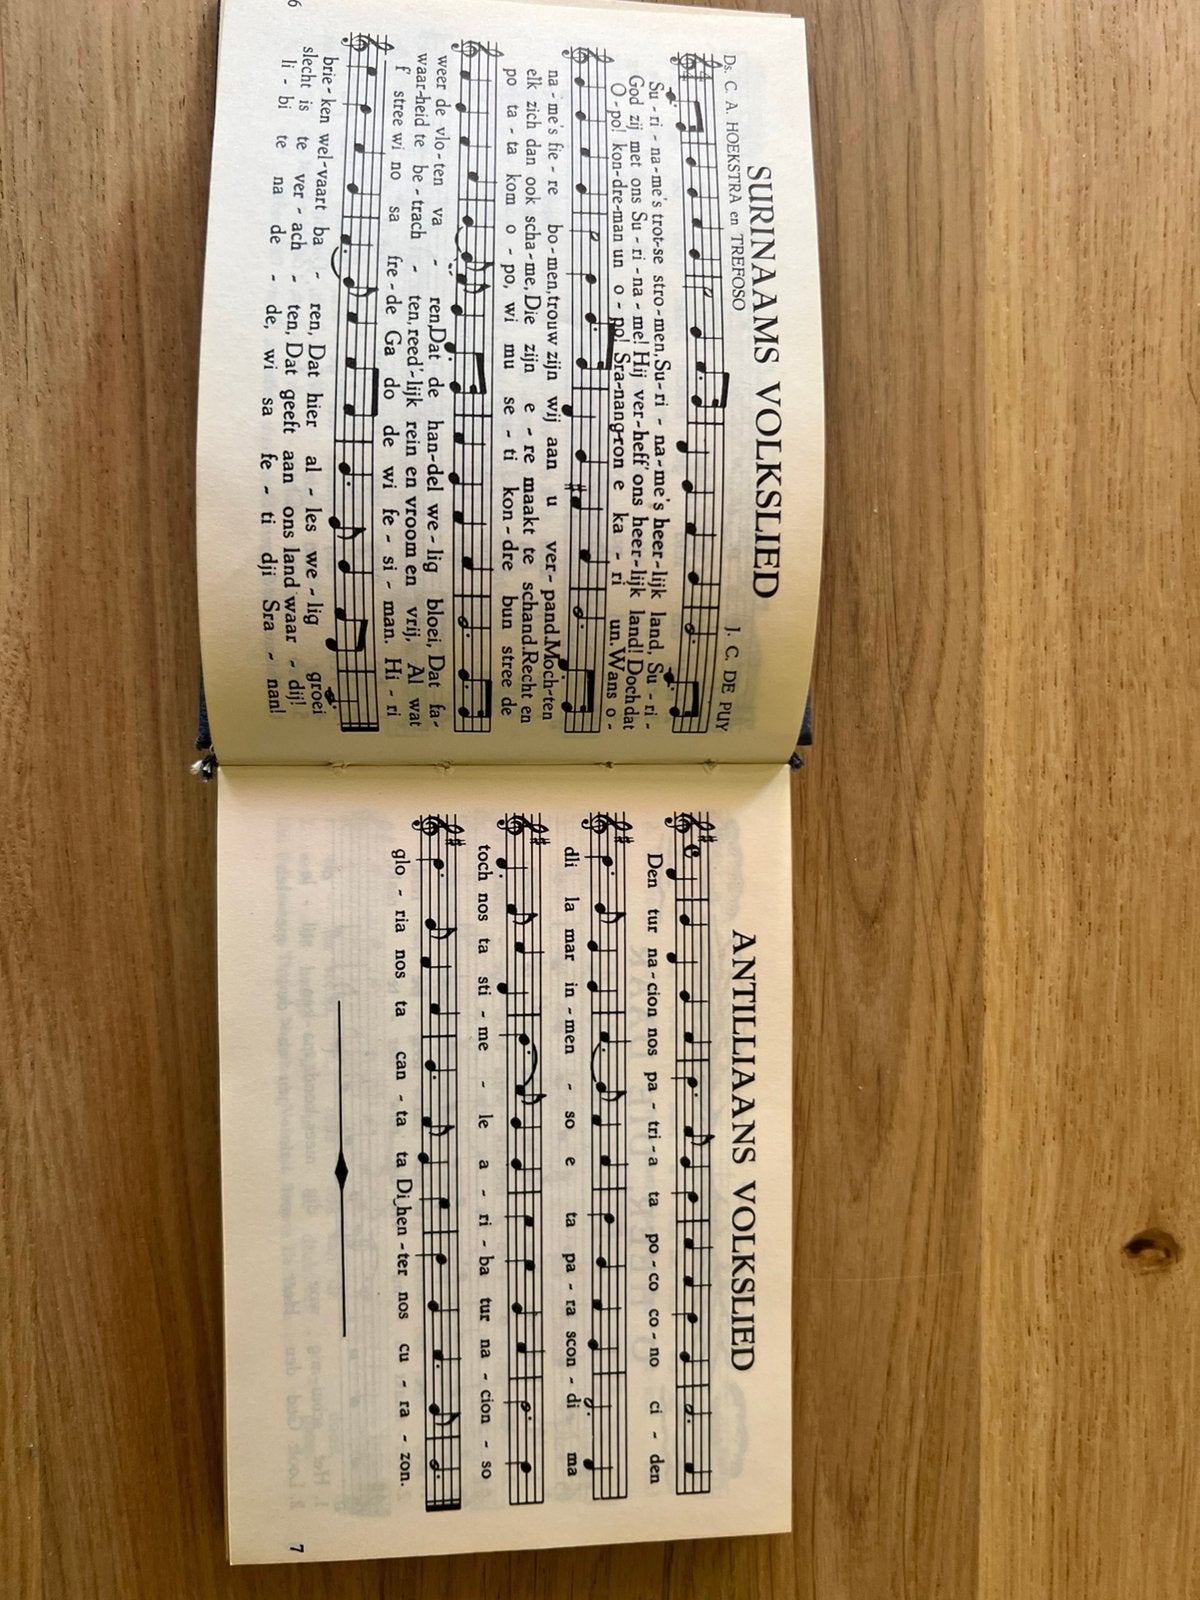 SURINAAMS VOLKSLIED
Ds. C. A. HOEKSTRA en TREFOSO
J. C. DE PUY
Su - ri - na-me's trot-se stro-men, Su-ri - na-me's heer-lijk land, Su - ri -
God zij met ons Su - ri - na - me! Hij ver-heff' ons heer-lijk land! Doch dat
O-po! kon-dre-man un o - po! Sra-nang-ron e ka - ri un. Wans o -
na - me's fie - re bo-men, trouw zijn wij aan u ver-pand. Moch-ten
elk zich dan ook scha-me, Die zijn e - re maakt te schand. Recht en
po ta - ta kom o - po, wi mu se - ti kon-dre bun stree de
weer de vlo-ten va - ren, Dat de han-del we-lig bloei, Dat fa-
waar-heid te be-trach - ten, reed'-lijk rein en vroom en vrij, Al wat
f stree wi no sa fre-de Ga do de wi fe-si-man. Hi - ri
brie-ken wel-vaart ba - ren, Dat hier al - les we-lig groei
slecht is te ver-ach - ten, Dat geeft aan ons land waar-dij!
li - bi te na de - de, wi sa fe - ti dji Sra - nan!
6
ANTILLIAANS VOLKSLIED
Den tur na-cion nos pa - tri-a ta po-co co-no ci - den
dli la mar in-men - so e ta pa-ra scon-di ma
toch nos ta sti-me - le a-ri-ba tur na-cion-so
glo - ria nos ta can-ta ta Di hen-ter nos cu - ra - zon.
7